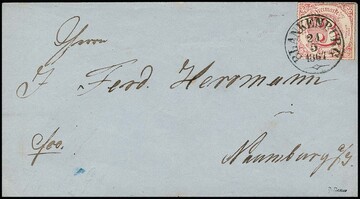 Herrn
J. Ferd. Herrmann
fco.
Naumburg a/S
BLANKENBURG
20
5
1867